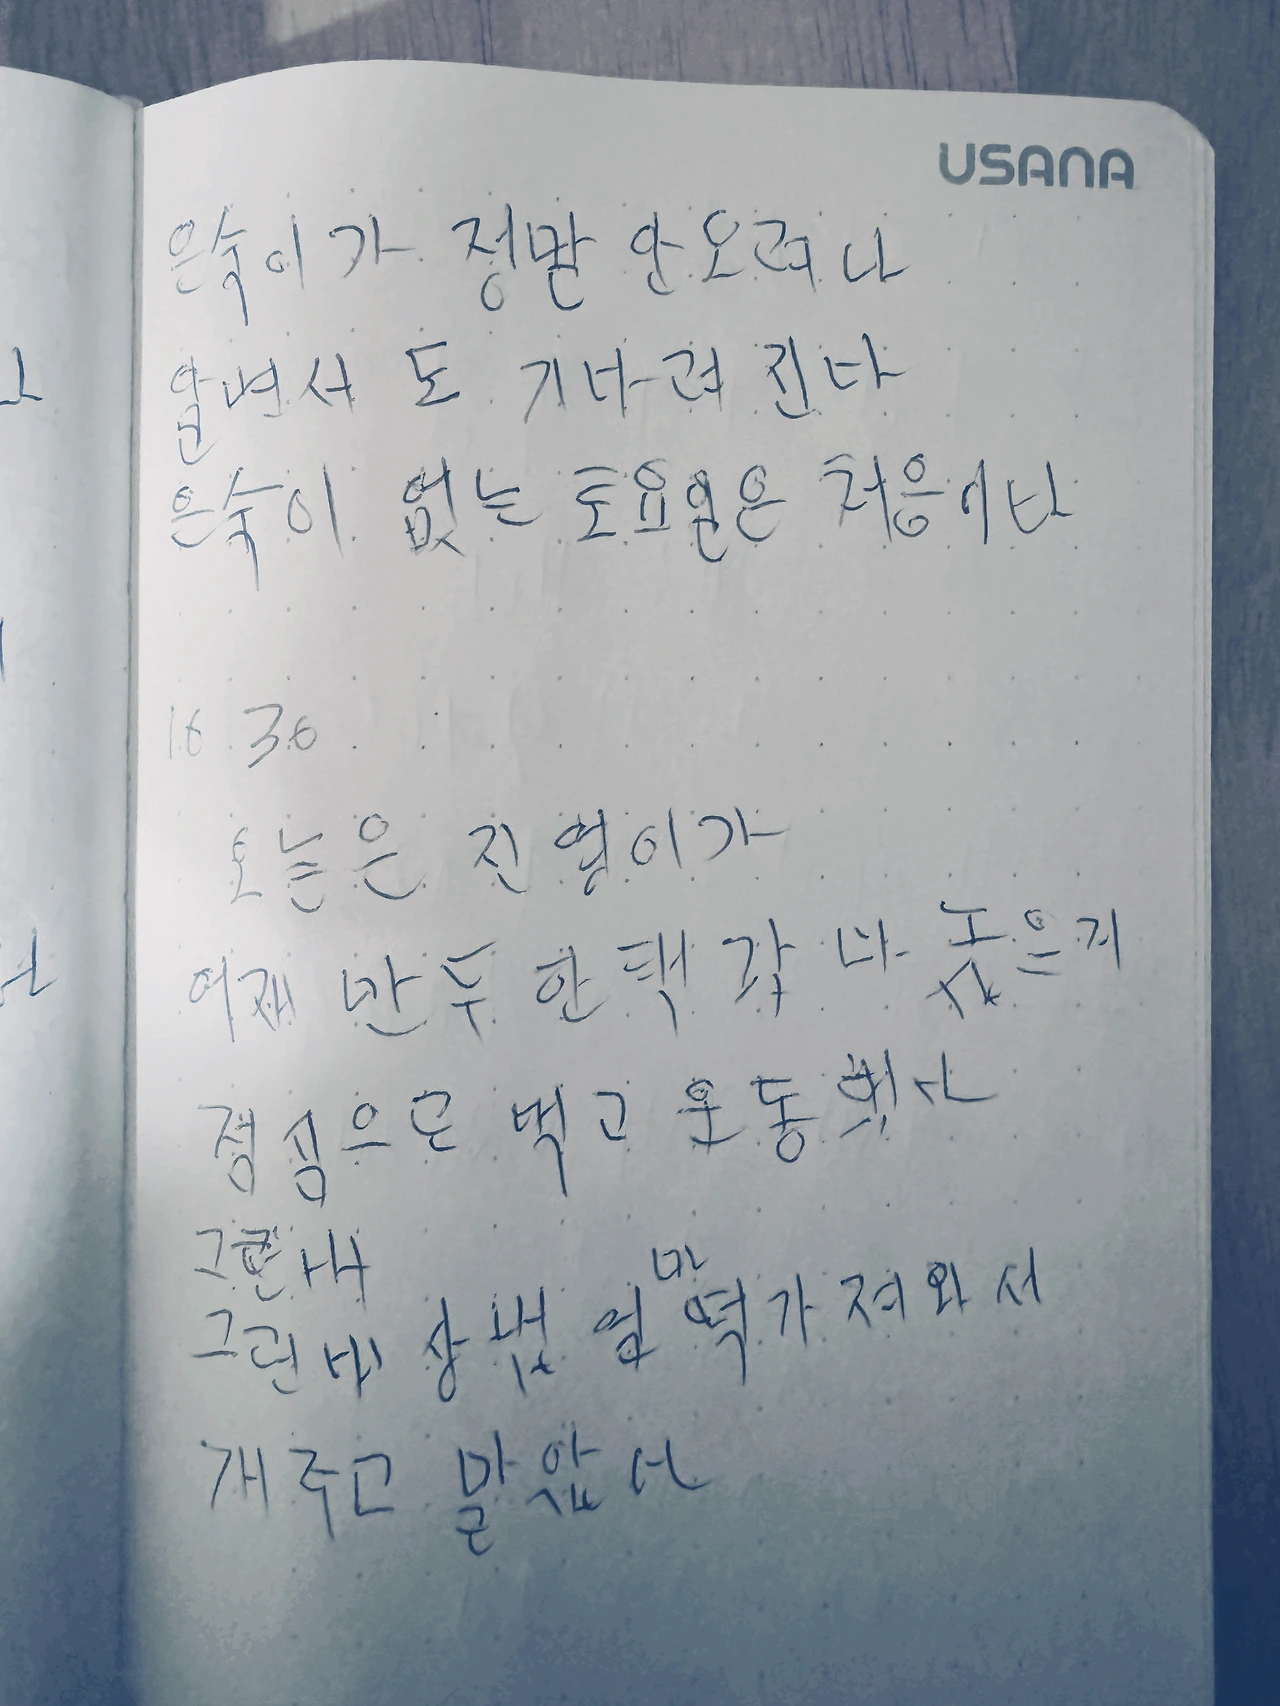 USANA
은숙이가 정말 안오려나
알면서도 기다려진다
은숙이 없는 토요일은 처음이다
16 30
오늘은 진영이가
어제 만두 한택 갖다 놓은거
점심으로 먹고 운동했다
그런데
상했 엄마 떡가져와서
개주고 말았다